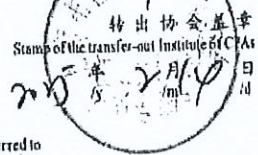 转出协会盖章
Stamp of the transfer-out Institute of CPAs
年 2月 14日
/y /m /d
rred to